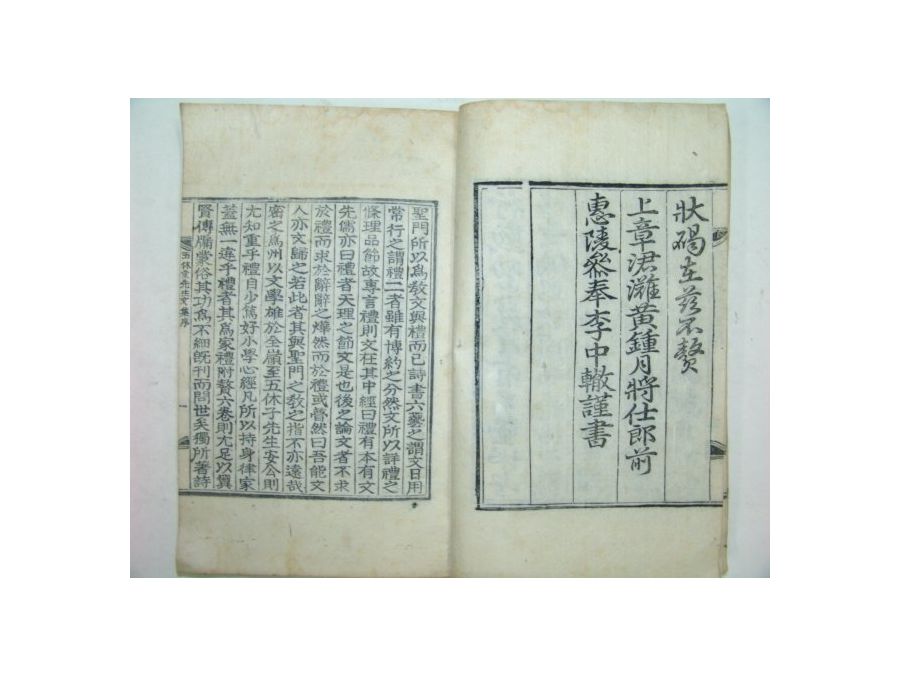 狀碣在茲不贅
上章涒灘黃鍾月將仕郎前
惠陵參奉李中轍謹書
聖門所以爲敎文與禮而已詩書六藝之謂文日用
常行之謂禮二者雖有博約之分然文所以詳禮之
條理品節故專言禮則文在其中經曰禮有本有文
先儒亦曰禮者天理之節文是也後之論文者不求
於禮而求於辭辭之燁然而於禮或瞢然曰吾能文
人亦文歸之若此者其與聖門之敎之指不亦遠哉
密之爲州以文學雄於全嶺至五休子先生安公則
尤知重乎禮自少篤好小學心經凡所以持身律家
蓋無一違乎禮者其爲家禮附贅六卷則尤足以翼
賢傳牖蒙俗其功爲不細旣刊而問世矣獨所著詩
五休堂先生文集序